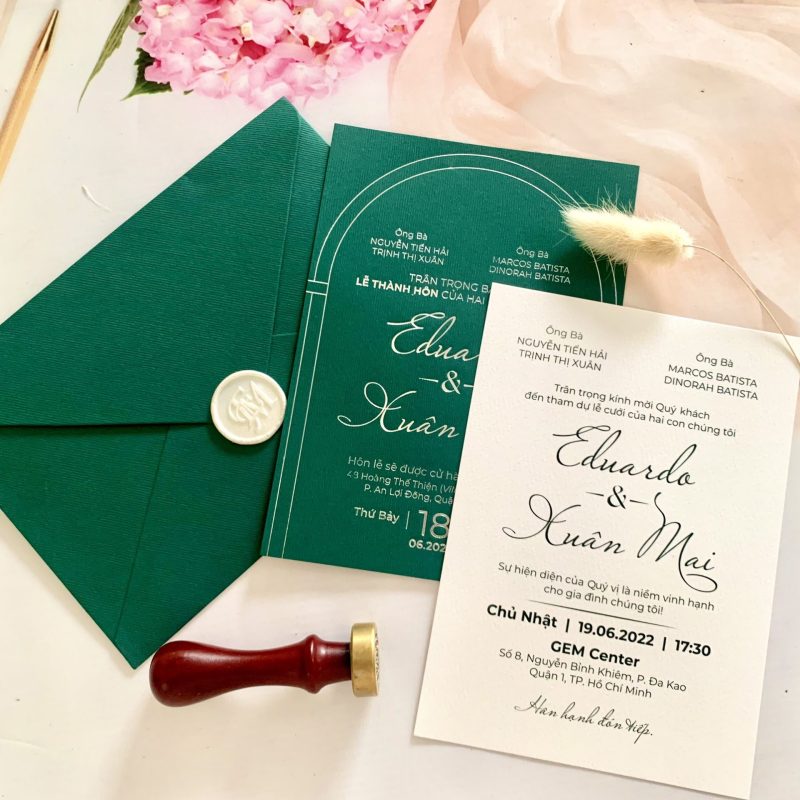 Ông Bà
NGUYỄN TIẾN HẢI
TRỊNH THỊ XUÂN
Ông Bà
MARCOS BATISTA
DINORAH BATISTA
TRÂN TRỌNG
LỄ THÀNH HÔN CỦA HAI
&
Xuân
Hôn lễ sẽ được cử
48 Hoàng Thế Thiện
P. An Lợi Đông,
Thứ Bảy | 18
Ông Bà
NGUYỄN TIẾN HẢI
TRỊNH THỊ XUÂN
Ông Bà
MARCOS BATISTA
DINORAH BATISTA
Trân trọng kính mời Quý khách
đến tham dự lễ cưới của hai con chúng tôi
Eduardo
&
Xuân Mai
Sự hiện diện của Quý vị là niềm vinh hạnh
cho gia đình chúng tôi!
Chủ Nhật | 19.06.2022 | 17:30
GEM Center
Số 8, Nguyễn Bỉnh Khiêm, P. Đa Kao
Quận 1, TP. Hồ Chí Minh
Hân hạnh đón tiếp.